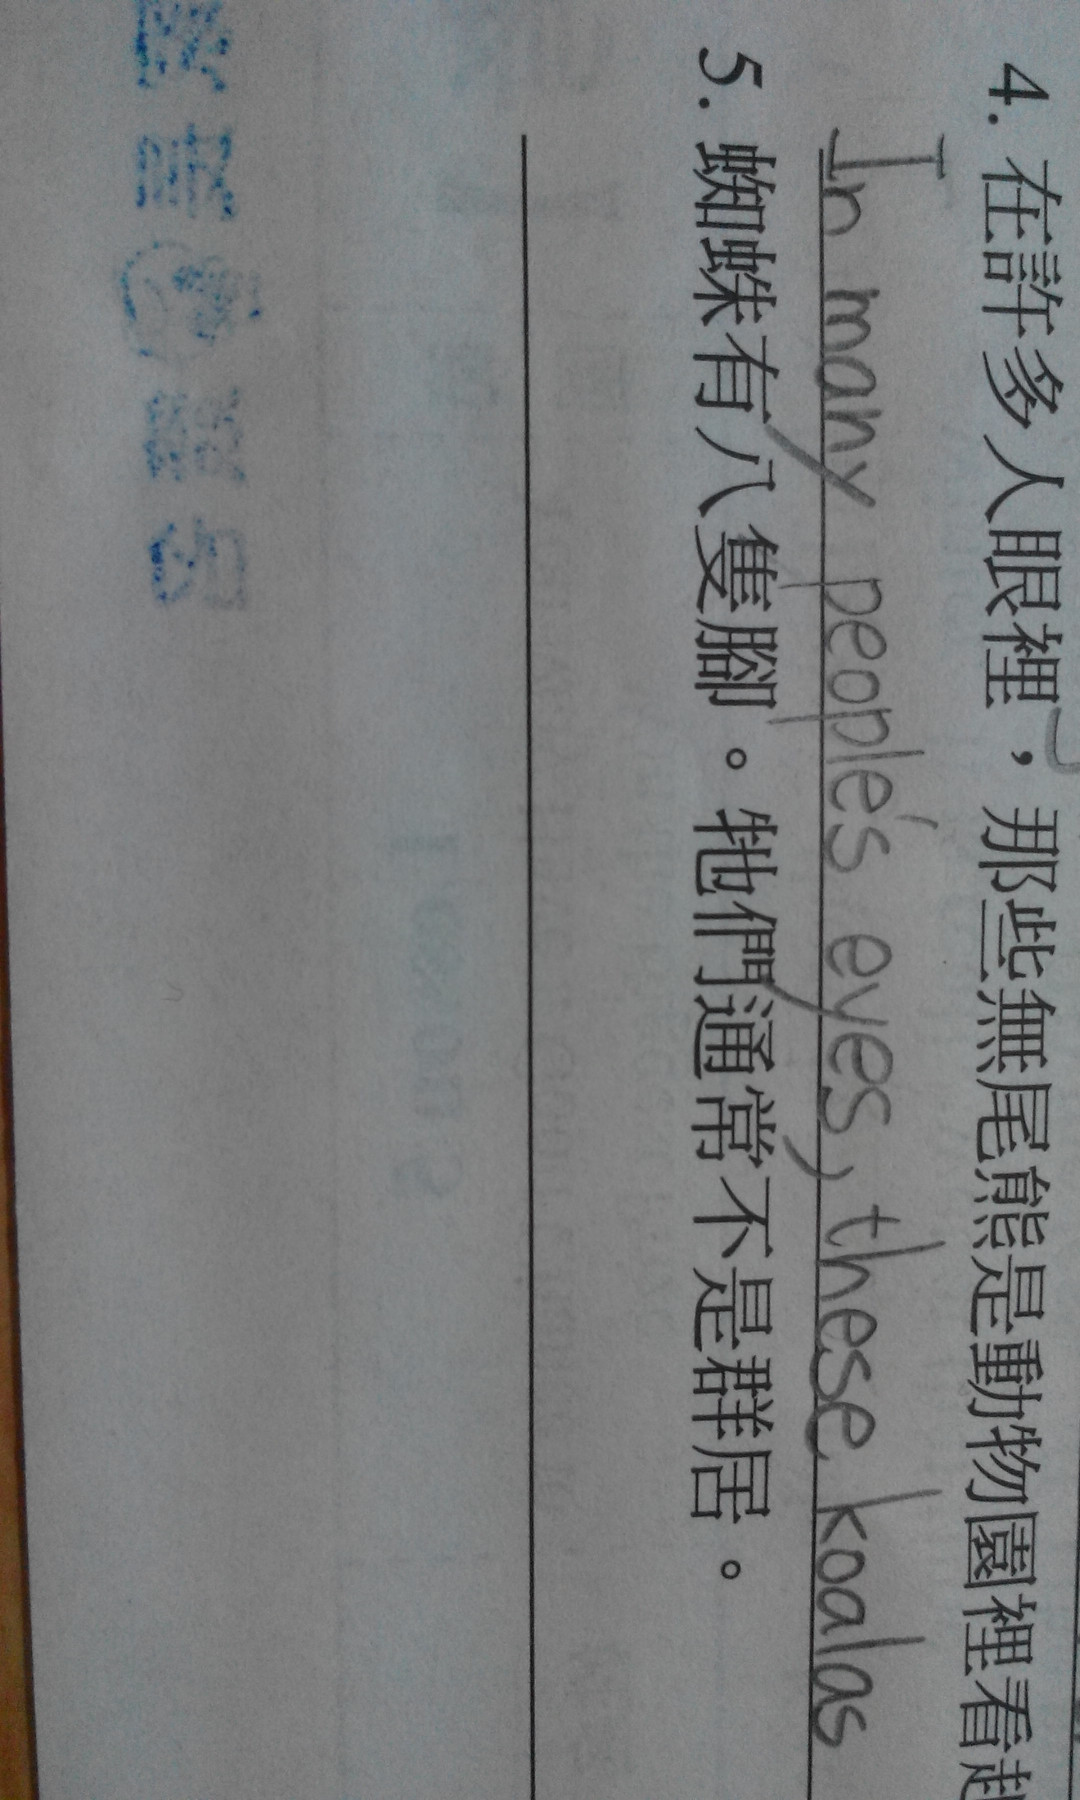 4. 在許多人眼裡，那些無尾熊是動物園裡看起
In many people's eyes, these koalas
5. 蜘蛛有八隻腳。牠們通常不是群居。